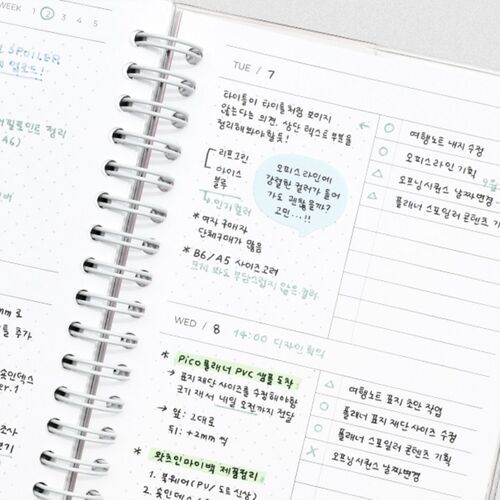 WEEK 1 2 3 4 5
SPOILER
A6)
TUE / 7
타이틀이 타이틀처럼 보이지
않는다는 의견. 상단 텍스트 부분을
정리해봐야할듯!
리프그린
아이스
블루
인기컬러
오피스라인에
강렬한 컬러가 들어
가도 괜찮을까?
고민...!!
* 여자 구매자
단체구매가 많음
* B6/A5 사이즈고려
크기 봐도 부담스럽지 않은 컬러
← ○ 여행노트 내지 수정
○ 오피스라인 기획
△ 오프닝시퀀스 날짜변경
△ 플래너 스포일러 콘텐츠 기
WED / 8 14:00 디자인 회의
* Pico 플래너 PVC 샘플 도착
→ 표지 재단 사이즈를 수정해야함
크기 재서 내일 오전까지 전달
→ 앞: 그대로
뒤: +2mm 씩
* 왓츠인마이백 제품정리
1. 북웨어(PU/도트식상)
△ 여행노트 표지 초안 작업
○ 플래너 표지 재단 사이즈 수정
○ 플래너 스포일러 콘텐츠 기획
X 오프닝시퀀스 날짜변경
mm 로
를 추가
숏인덱스
er.1